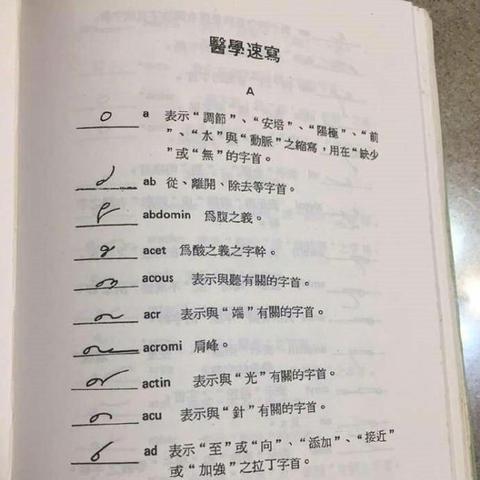 醫學速寫
A
a 表示“調節”、“安培”、“陽極”、“前
”、“水”與“動脈”之縮寫，用在“缺少
”或“無”的字首。
ab 從、離開、除去等字首。
abdomin 爲腹之義。
acet 爲酸之義之字幹。
acous 表示與聽有關的字首。
acr 表示與“端”有關的字首。
acromi 肩峰。
actin 表示與“光”有關的字首。
acu 表示與“針”有關的字首。
ad 表示“至”或“向”、“添加”、“接近”
或“加強”之拉丁字首。